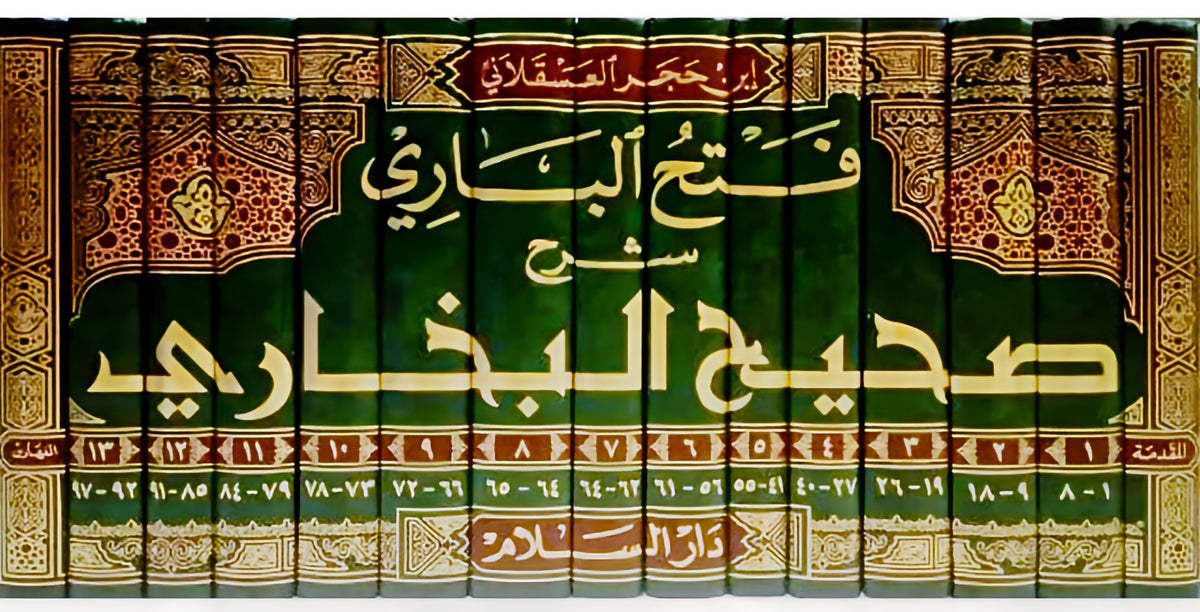 ابن حَجَر العَسْقَلَاني
فَتْحُ البَارِيْ
شرح
صحيح البخاري
المقدمة ١ ٢ ٣ ٤ ٥ ٦ ٧ ٨ ٩ ١٠ ١١ ١٢ ١٣
١-٨ ٩-١٨ ١٩-٢٦ ٢٧-٤٠ ٤١-٥٥ ٥٦-٦١ ٦٢-٦٤ ٦٤-٦٥ ٦٦-٧٢ ٧٣-٧٨ ٧٩-٨٤ ٨٥-٩١ ٩٢-٩٧
دَارُ السَّلَام